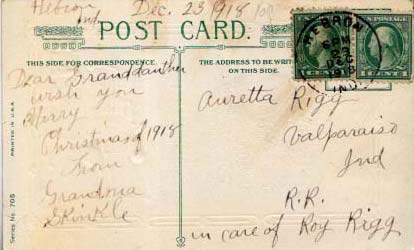 Hebron Ind Dec. 23 1918
POST CARD.
THIS SIDE FOR CORRESPONDENCE.
THE ADDRESS TO BE WRITTEN ON THIS SIDE.
HEBRON
DEC
23
1918
IND.
1 CENT 1
Dear Granddauther
wish you
Merry
Christmas of 1918
from
Grandma
Skinkle
Auretta Rigg
Valparaiso
Ind
R.R.
in care of Roy Rigg
PRINTED IN U.S.A.
Series No. 705